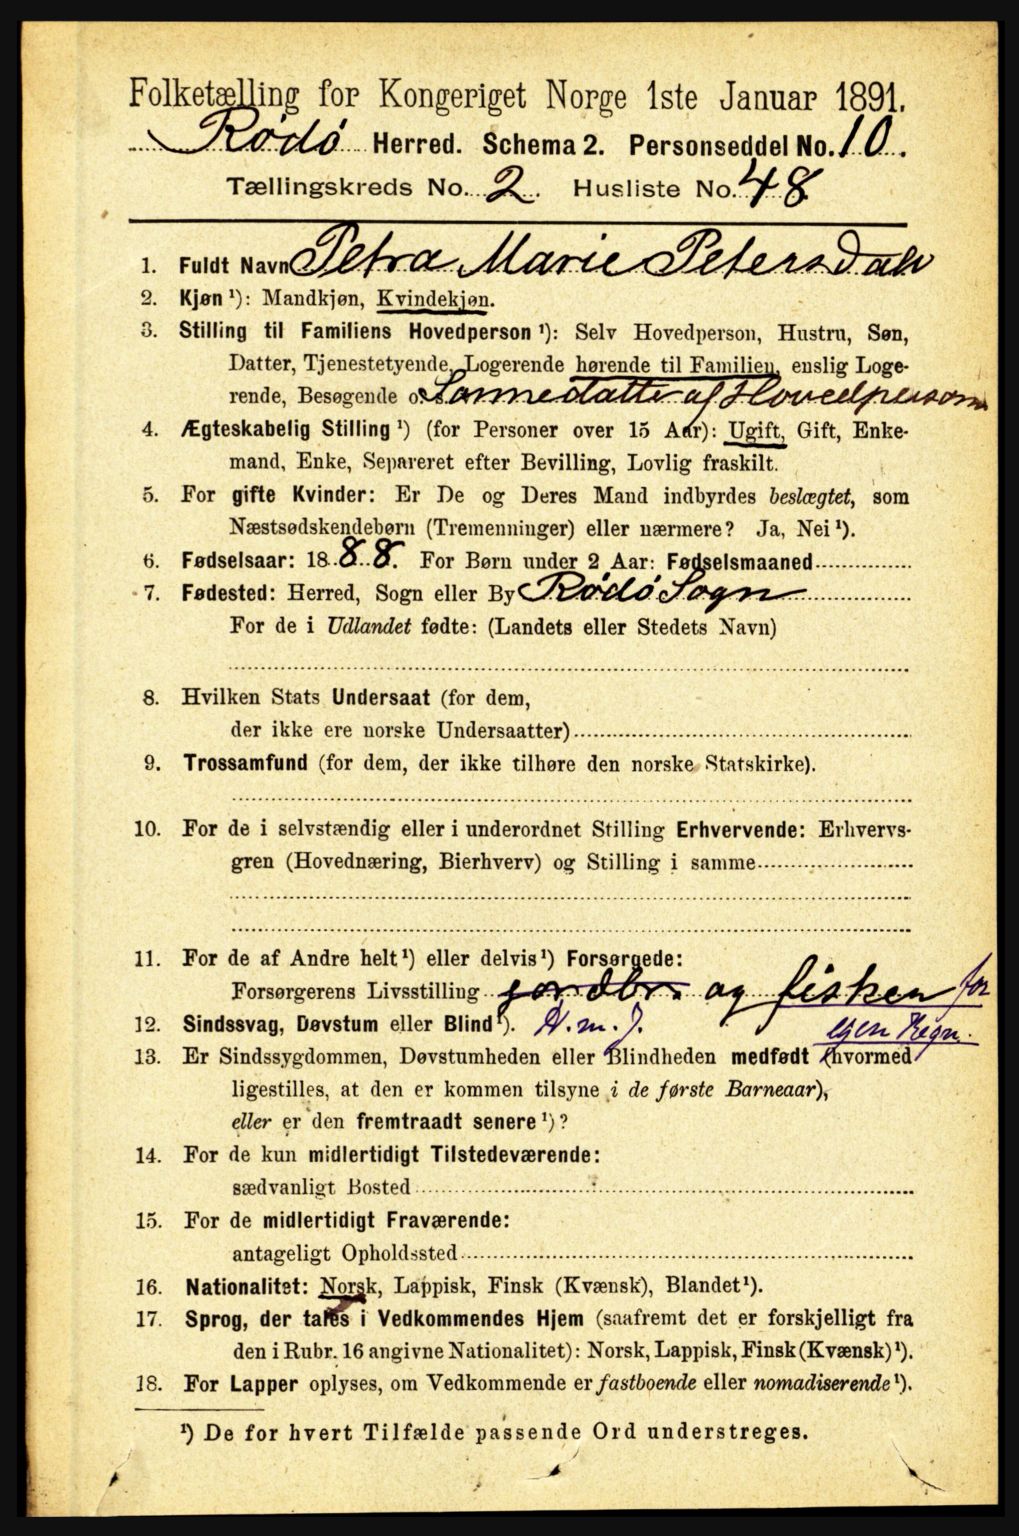 Folketælling for Kongeriget Norge 1ste Januar 1891.
Rødø Herred. Schema 2. Personseddel No. 10.
Tællingskreds No. 2. Husliste No. 48
1. Fuldt Navn Petra Marie Petersdatr
2. Kjøn ¹): Mandkjøn, Kvindekjøn.
3. Stilling til Familiens Hovedperson ¹): Selv Hovedperson, Hustru, Søn,
Datter, Tjenestetyende, Logerende hørende til Familien, enslig Loge-
rende, Besøgende o. s. Sønnedatter af Hovedperson
4. Ægteskabelig Stilling ¹) (for Personer over 15 Aar): Ugift, Gift, Enke-
mand, Enke, Separeret efter Bevilling, Lovlig fraskilt.
5. For gifte Kvinder: Er De og Deres Mand indbyrdes beslægtet, som
Næstsødskendebørn (Tremenninger) eller nærmere? Ja, Nei ¹).
6. Fødselsaar: 1888. For Børn under 2 Aar: Fødselsmaaned
7. Fødested: Herred, Sogn eller By Rødø Sogn
For de i Udlandet fødte: (Landets eller Stedets Navn)
8. Hvilken Stats Undersaat (for dem,
der ikke ere norske Undersaatter)
9. Trossamfund (for dem, der ikke tilhøre den norske Statskirke).
10. For de i selvstændig eller i underordnet Stilling Erhvervende: Erhvervs-
gren (Hovednæring, Bierhverv) og Stilling i samme
11. For de af Andre helt ¹) eller delvis ¹) Forsørgede:
Forsørgerens Livsstilling jordbr. og fisker for
12. Sindssvag, Døvstum eller Blind ¹). H. m. J. egen Regn.
13. Er Sindssygdommen, Døvstumheden eller Blindheden medfødt (hvormed
ligestilles, at den er kommen tilsyne i de første Barneaar),
eller er den fremtraadt senere ¹)?
14. For de kun midlertidigt Tilstedeværende:
sædvanligt Bosted
15. For de midlertidigt Fraværende:
antageligt Opholdssted
16. Nationalitet: Norsk, Lappisk, Finsk (Kvænsk), Blandet ¹).
17. Sprog, der tales i Vedkommendes Hjem (saafremt det er forskjelligt fra
den i Rubr. 16 angivne Nationalitet): Norsk, Lappisk, Finsk (Kvænsk) ¹).
18. For Lapper oplyses, om Vedkommende er fastboende eller nomadiserende ¹).
¹) De for hvert Tilfælde passende Ord understreges.